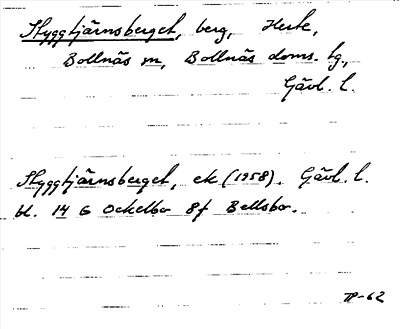 Styggtjärnsberget, berg, Herte,
Bollnäs sn, Bollnäs doms. tg.,
Gävl. l.
Styggtjärnsberget, ek (1958). Gävl. l.
bl. 14 G Ockelbo 8f Bellsbo.
TP-62